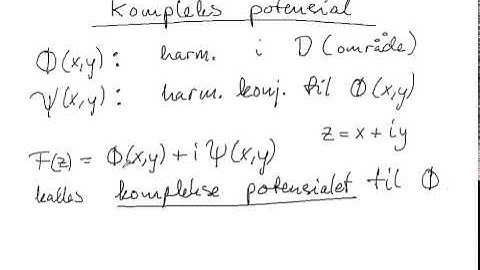 Kompleks potensial
Φ(x,y): harm. i D (område)
Ψ(x,y): harm. konj. til Φ(x,y)
z = x + iy
F(z) = Φ(x,y) + i Ψ(x,y)
kalles komplekse potensialet til Φ